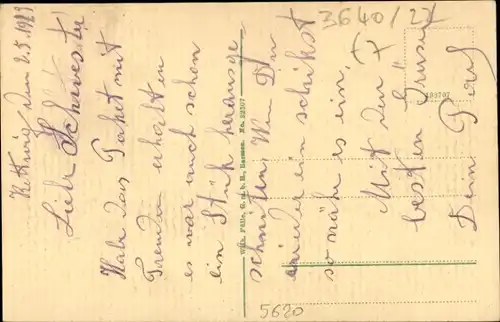 Kettwig den 2.5.1923
Liebe Schwester
Habe das Paket mit
Freuden erhalten
es war auch schon
ein Stück herausge
schnitten. Wen Du
wieder ein schickst
so nähe es ein.
Mit den
besten Grüßen
Dein Paul
3640/22
5620
Wilh. Fülle, G. m. b. H., Barmen. No. 22707